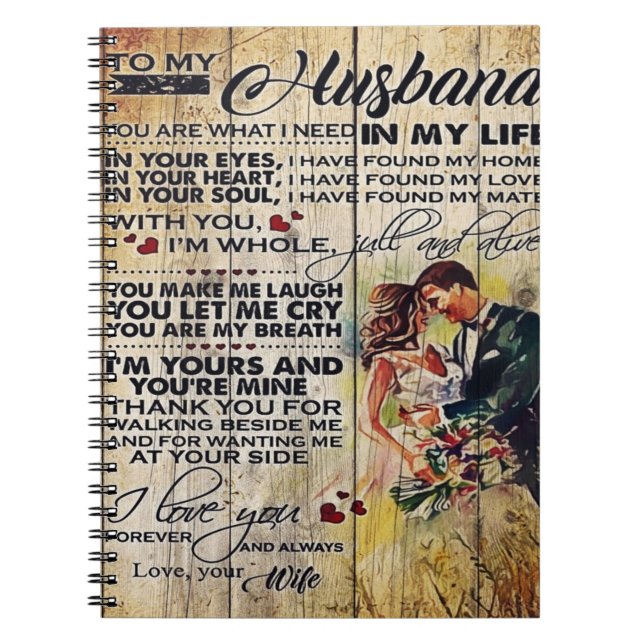 TO MY
Husband
YOU ARE WHAT I NEED IN MY LIFE
IN YOUR EYES, I HAVE FOUND MY HOME
IN YOUR HEART, I HAVE FOUND MY LOVE
IN YOUR SOUL, I HAVE FOUND MY MATE
WITH YOU,
I'M WHOLE, full and alive
YOU MAKE ME LAUGH
YOU LET ME CRY
YOU ARE MY BREATH
I'M YOURS AND
YOU'RE MINE
THANK YOU FOR
WALKING BESIDE ME
AND FOR WANTING ME
AT YOUR SIDE
I love you
FOREVER
AND ALWAYS
Love, your Wife